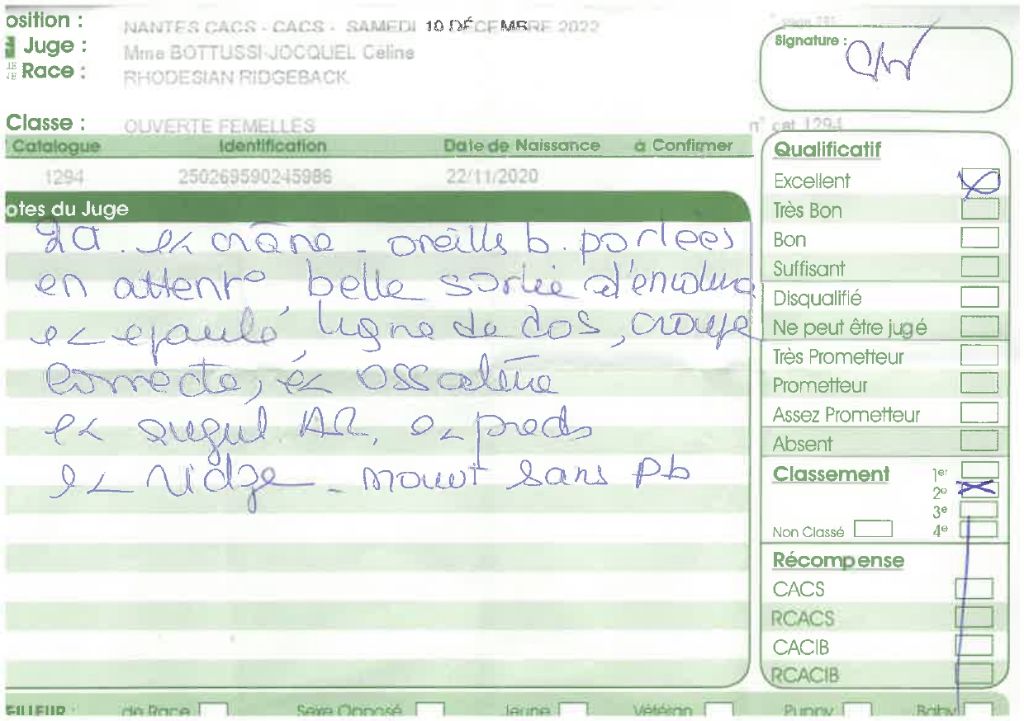 osition : NANTES CACS - CACS - SAMEDI 10 DÉCEMBRE 2022
Juge : Mme BOTTUSSI-JOCQUEL Céline
Race : RHODESIAN RIDGEBACK
Signature :
Classe : OUVERTE FEMELLES
n° cat 1294
Catalogue Identification Date de Naissance à Confirmer
1294 250269590245986 22/11/2020
otes du Juge
2a. ex crâne - oreills b. portees
en attent° belle sortie d'encolure
ex epaule, ligne de dos, croupe
correcte, ex ossature
ex angul. AR, ex pieds
ex ridge - mouvt sans pb
Qualificatif
Excellent
Très Bon
Bon
Suffisant
Disqualifié
Ne peut être jugé
Très Prometteur
Prometteur
Assez Prometteur
Absent
Classement 1er
2e
3e
Non Classé 4e
Récompense
CACS
RCACS
CACIB
RCACIB
EILLEUR : de Race Sexe Opposé Jeune Vétéran Puppy Baby